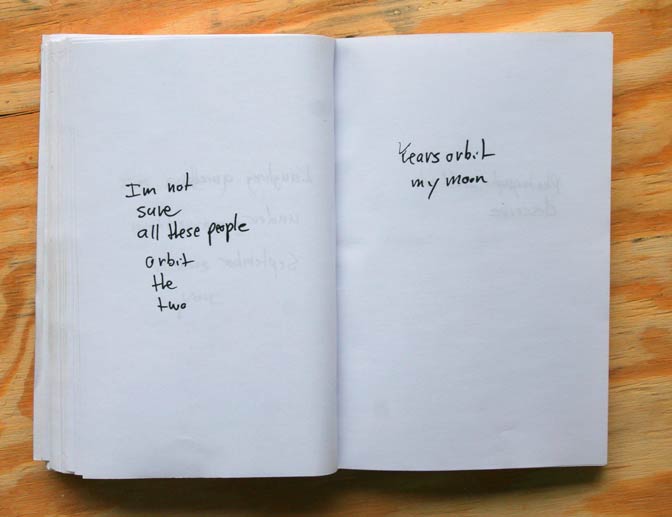 I'm not
sure
all these people
orbit
the
two
orbit
my moon